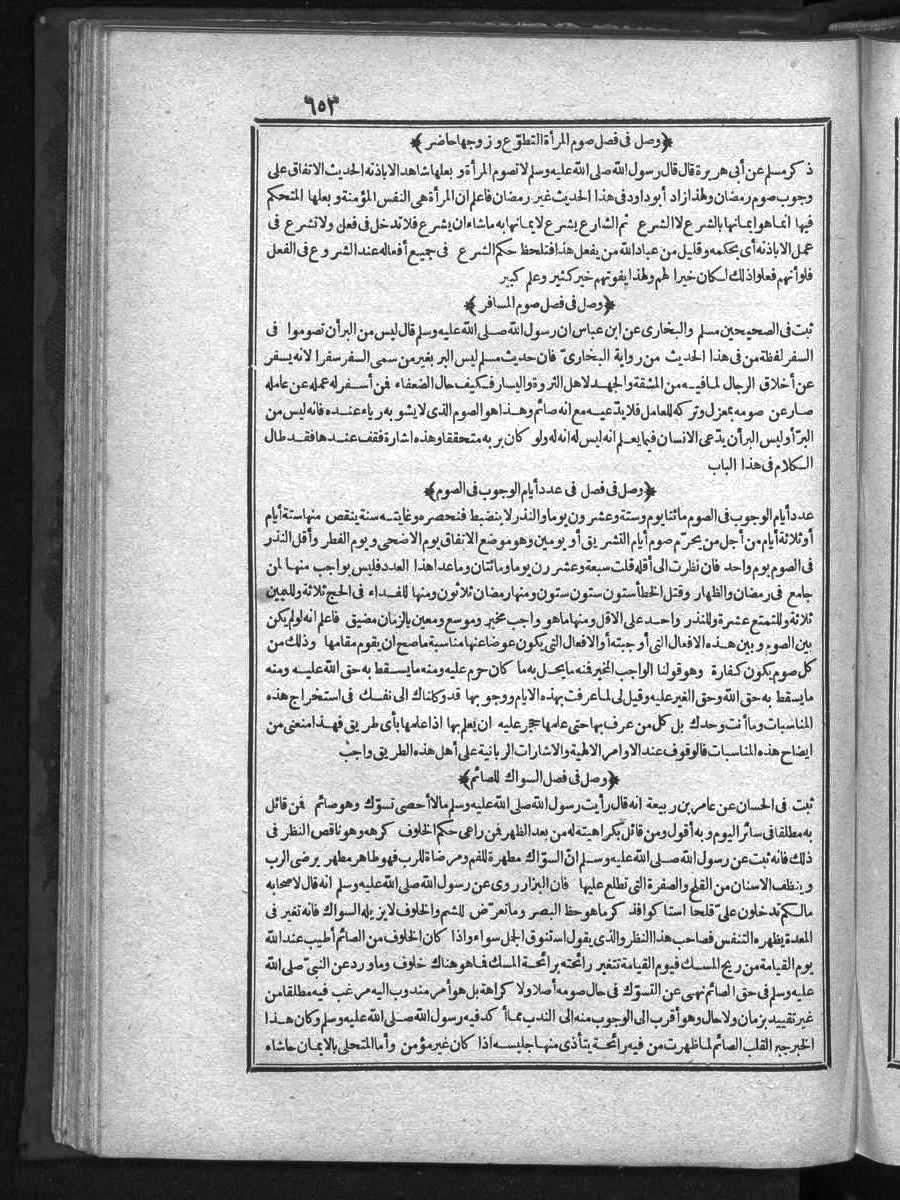 ٦٥٣
﴿وصل فى فصل صوم المرأة التطوّع وزوجها حاضر﴾
ذكر مسلم عن أبى هريرة قال قال رسول الله صلى الله عليه وسلم لا تصوم المرأة وبعلها شاهد الا باذنه الحديث الاتفاق على
وجوب صوم رمضان ولهذا زاد أبو داود فى هذا الحديث غير رمضان فاعلم ان المرأة هى النفس المؤمنة وبعلها المتحكم
فيها انما هو ايمانها بالشرع لا الشرع ثم الشارع يشرع لايمانها به ما شاء ان يشرع فلا تدخل فى فعل ولا تشرع فى
عمل الا باذنه أى بحكمه وقليل من عباد الله من يفعل هذا فتلحظ حكم الشرع فى جميع أفعاله عند الشروع فى الفعل
فلو أنهم فعلوا ذلك لكان خيرا لهم ولهذا يفوتهم خير كثير وعلم كبير
﴿وصل فى فصل صوم المسافر﴾
ثبت فى الصحيحين مسلم والبخارى عن ابن عباس ان رسول الله صلى الله عليه وسلم قال ليس من البر أن تصوموا فى
السفر لفظة من فى هذا الحديث من رواية البخارىّ فان حديث مسلم ليس البر بغير من سمى السفر سفرا لانه يسفر
عن أخلاق الرجال لما فيه من المشقة والجهد لاهل الثروة واليسار فكيف حال الضعفاء فمن أسفر له عمله عن عامله
صار عن صومه بمعزل وتركه للعامل فلا يدّعيه مع انه صائم وهذا هو الصوم الذى لا يشوبه رياء عنده فانه ليس من
البرّ أو ليس البر أن يدّعى الانسان فيما يعلم انه ليس له انه له ولو كان بربه متحققا وهذه اشارة فقف عندها فقد طال
الكلام فى هذا الباب
﴿وصل فى فصل فى عدد أيام الوجوب فى الصوم﴾
عدد أيام الوجوب فى الصوم مائتا يوم وستة وعشرون يوما والنذر لا ينضبط فنحصره وغايته سنة ينقص منها ستة أيام
أو ثلاثة أيام من أجل من يحرّم صوم أيام التشريق أو يومين وهو موضع الاتفاق يوم الاضحى ويوم الفطر وأقل النذر
فى الصوم يوم واحد فان نظرت الى أقله قلت سبعة وعشرون يوما ومائتان وما عدا هذا العدد فليس بواجب منها لمن
جامع فى رمضان والظهار وقتل الخطأ ستون ستون ستون ومنها رمضان ثلاثون ومنها للفداء فى الحج ثلاثة ولليمين
ثلاثة وللتمتع عشرة وللنذر واحد على الاقل ومنها ما هو واجب مخير وموسع ومعين بالزمان مضيق فاعلم انه لو لم يكن
بين الصوم وبين هذه الافعال التى أوجبته أو الافعال التى يكون عوضا عنها مناسبة ما صح ان يقوم مقامها وذلك من
كل صوم يكون كفارة وهو قولنا الواجب المخير فنه ما يحل به ما كان حرم عليه ومنه ما يسقط به حق الله عليه ومنه
ما يسقط به حق الله وحق الغير عليه وقيل لى لما عرفت بهذه الايام ووجوبها قد وكلناك الى نفسك فى استخراج هذه
المناسبات وما أنت وحدك بل كل من عرف بها حتى علمها حجر عليه ان يعلم بها اذا علمها بأى طريق فهذا منعنى من
ايضاح هذه المناسبات فالوقوف عند الاوامر الالهية والاشارات الربانية على أهل هذه الطريق واجب
﴿وصل فى فصل السواك للصائم﴾
ثبت فى الحسان عن عامر بن ربيعة انه قال رأيت رسول الله صلى الله عليه وسلم مالا أحصى تسوّك وهو صائم فمن قائل
به مطلقا فى سائر اليوم وبه أقول ومن قائل بكراهيته له من بعد الظهر فمن راعى حكم الخلوف كرهه وهو ناقص النظر فى
ذلك فانه ثبت عن رسول الله صلى الله عليه وسلم انّ السوّاك مطهرة للفم ومرضاة للرب فهو طاهر مطهر يرضى الرب
وينظف الاسنان من القلح والصفرة التى تطلع عليها فان البزار روى عن رسول الله صلى الله عليه وسلم انه قال لاصحابه
مالكم تدخلون علىّ قلحا استاكوا فذكر ما هو حظ البصر وما تعرّض للشم والخلوف لا يزيله السواك فانه تغير فى
المعدة يظهره التنفس فصاحب هذا النظر والذى يقول استنوق الجمل سواء واذا كان الخلوف من الصائم أطيب عند الله
يوم القيامة من ريح المسك فيوم القيامة تتغير رائحته برائحة المسك فما هو هناك خلوف وما ورد عن النبىّ صلى الله
عليه وسلم فى حق الصائم نهى عن التسوّك فى حال صومه أصلا ولا كراهة بل هو أمر مندوب اليه مرغب فيه مطلقا من
غير تقييد بزمان ولا حال وهو أقرب الى الوجوب منه الى الندب مما أكد فيه رسول الله صلى الله عليه وسلم وكان هذا
الخبر جبر القلب الصائم لما ظهرت من فيه رائحة يتأذى منها جليسه اذا كان غير مؤمن وأما المتحلى بالايمان حاشاه